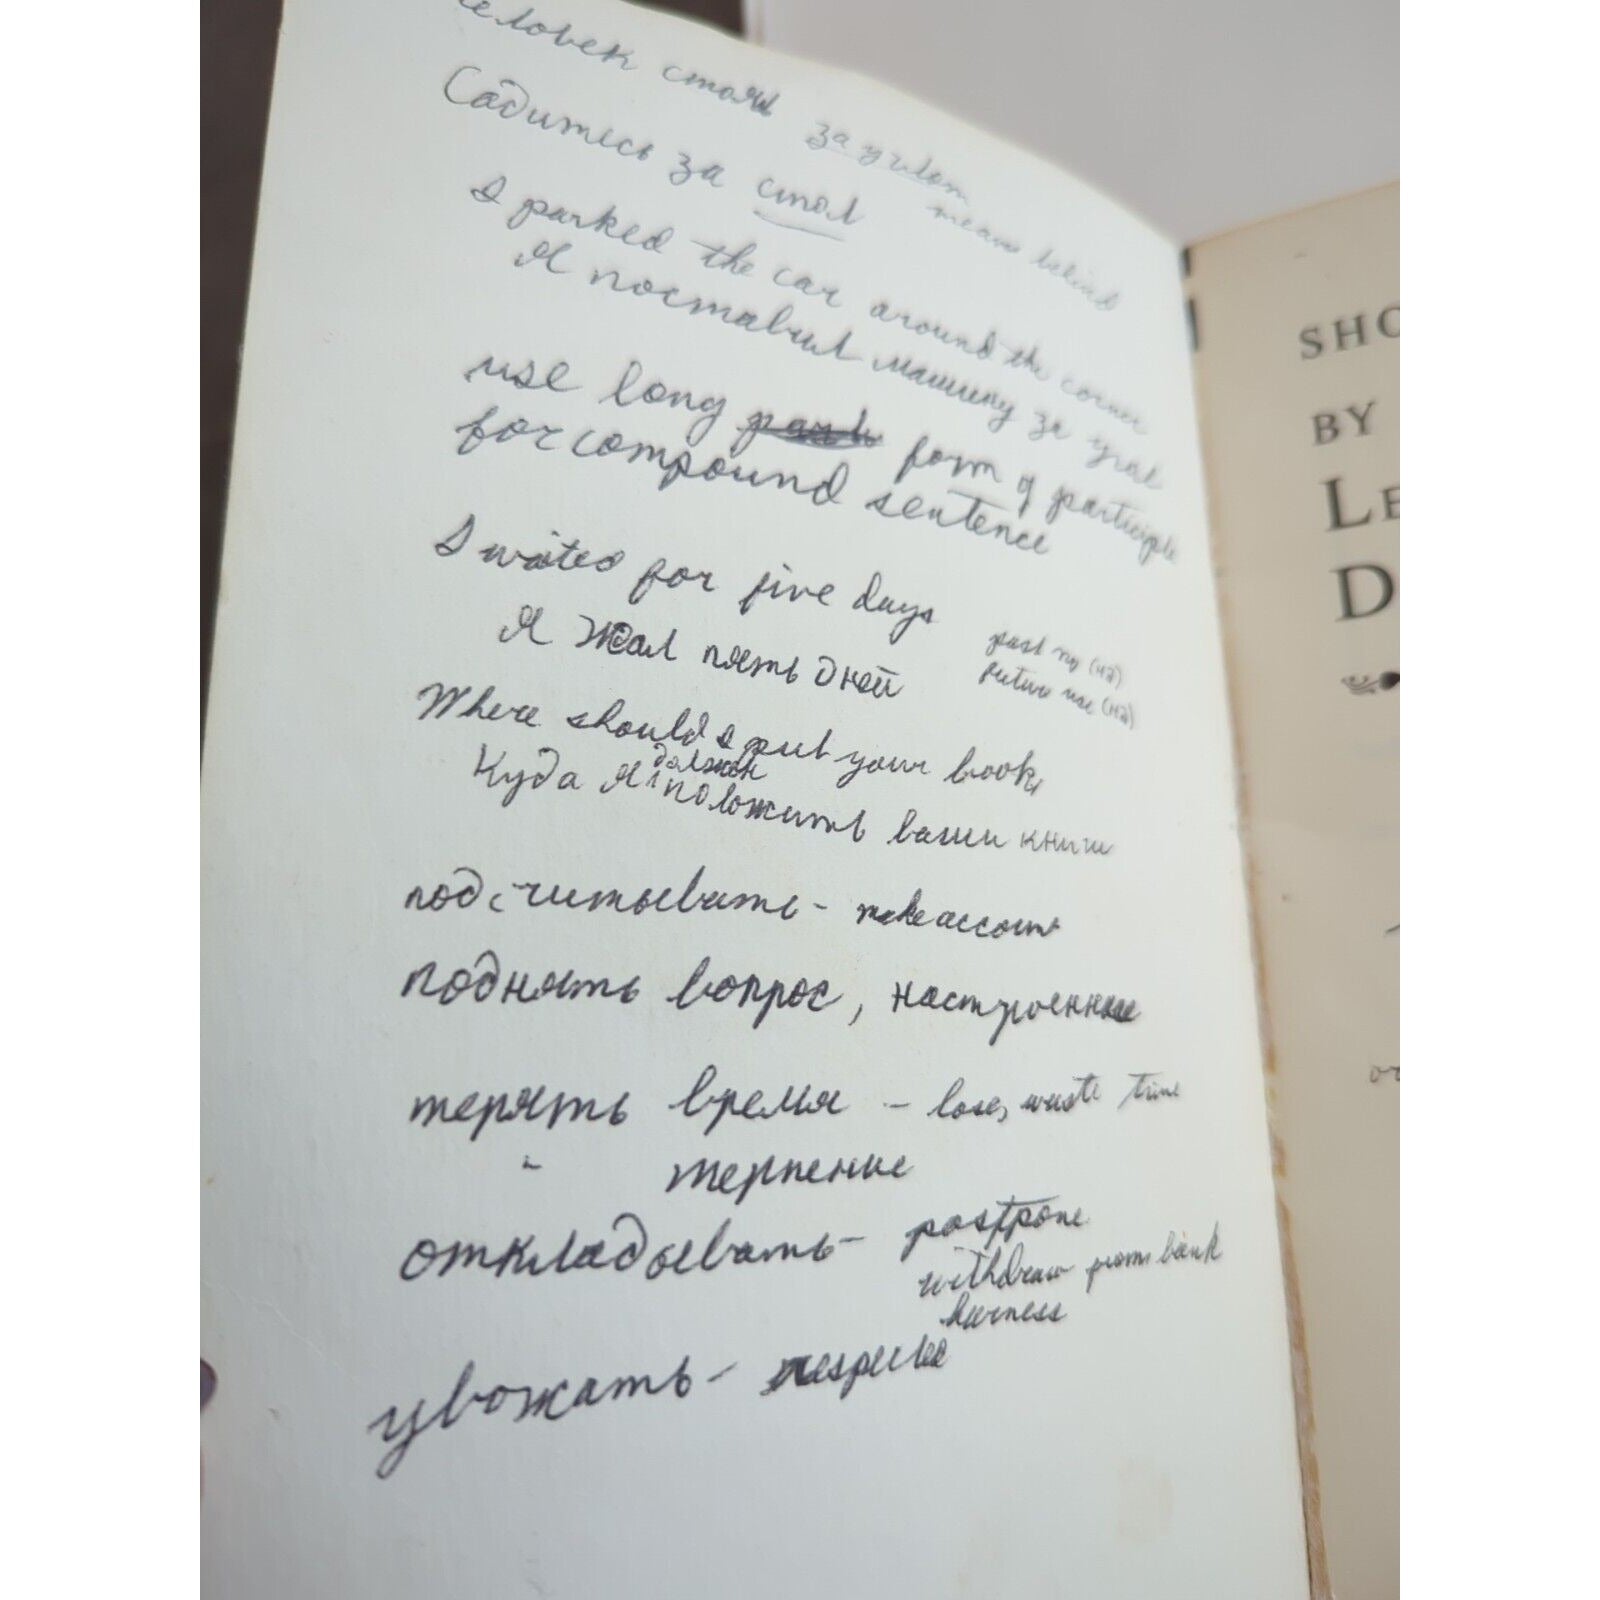 человек стоял за углом
means behind
Садитесь за стол
I parked the car around the corner
Я поставил машину за угол
use long form of participle
for compound sentence
I waited for five days
Я ждал пять дней
past no (на)
future use (на)
Where should I put your book,
должен
Куда я положить ваши книги
подсчитывать - make account
поднять вопрос, настроение
терять время - lose, waste time
" терпение
откладывать - postpone
withdraw from bank
harness
увожать -
SHO
BY
LE
D